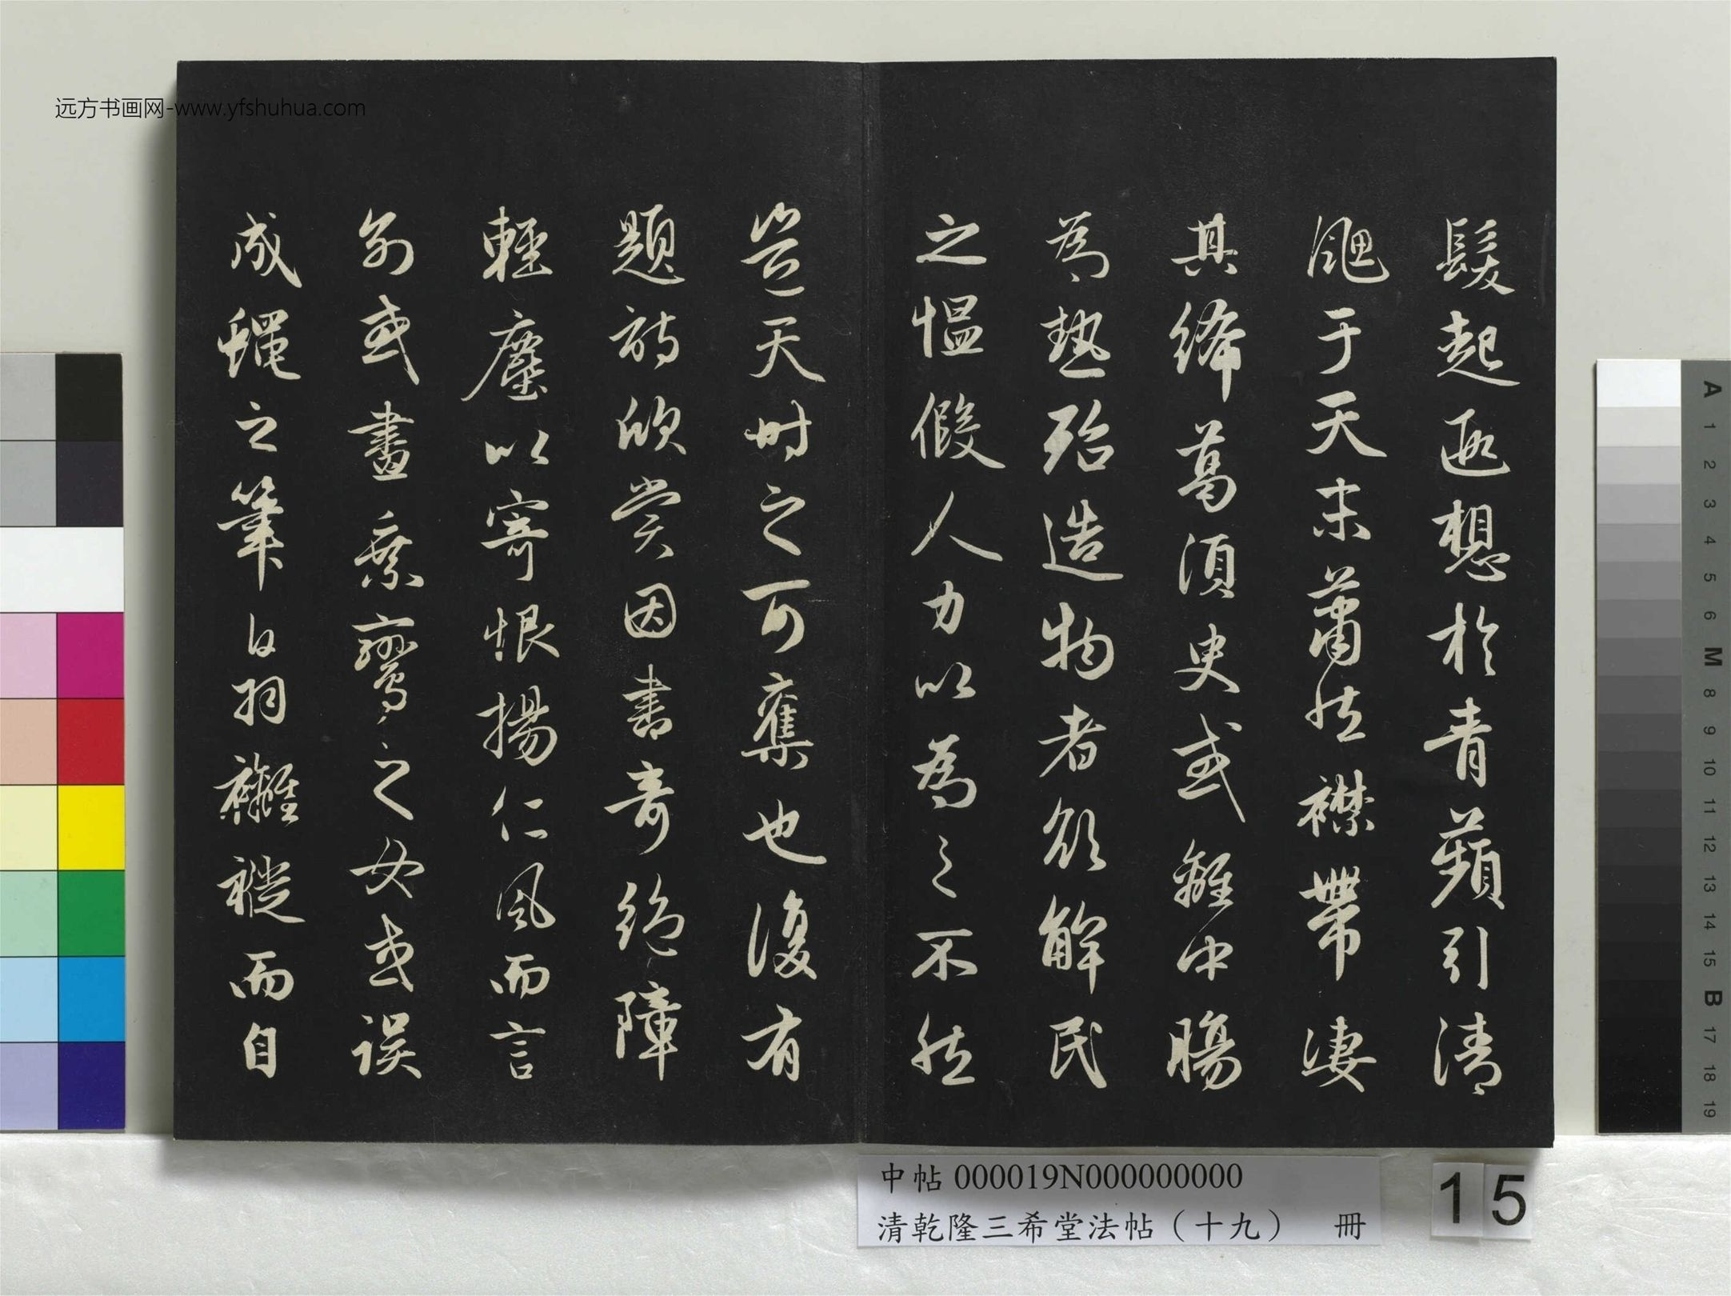 远方书画网-www.yfshuhua.com
髮起遐想於青蘋引清
颸于天末蕭然襟帶淒
其絺葛須臾或離中腸
為熱殆造物者欲解民
之慍假人力以為之不然
豈天時之可奪也復有
題詩欣賞因書奇絕障
輕塵以寄恨揚仁風而言
別或畫乘鸞之女或誤
成蠅之筆白羽襹褷而自
中帖 000019N000000000
清乾隆三希堂法帖（十九） 冊
15
A 1 2 3 4 5 6 M 8 9 10 11 12 13 14 15 B 17 18 19